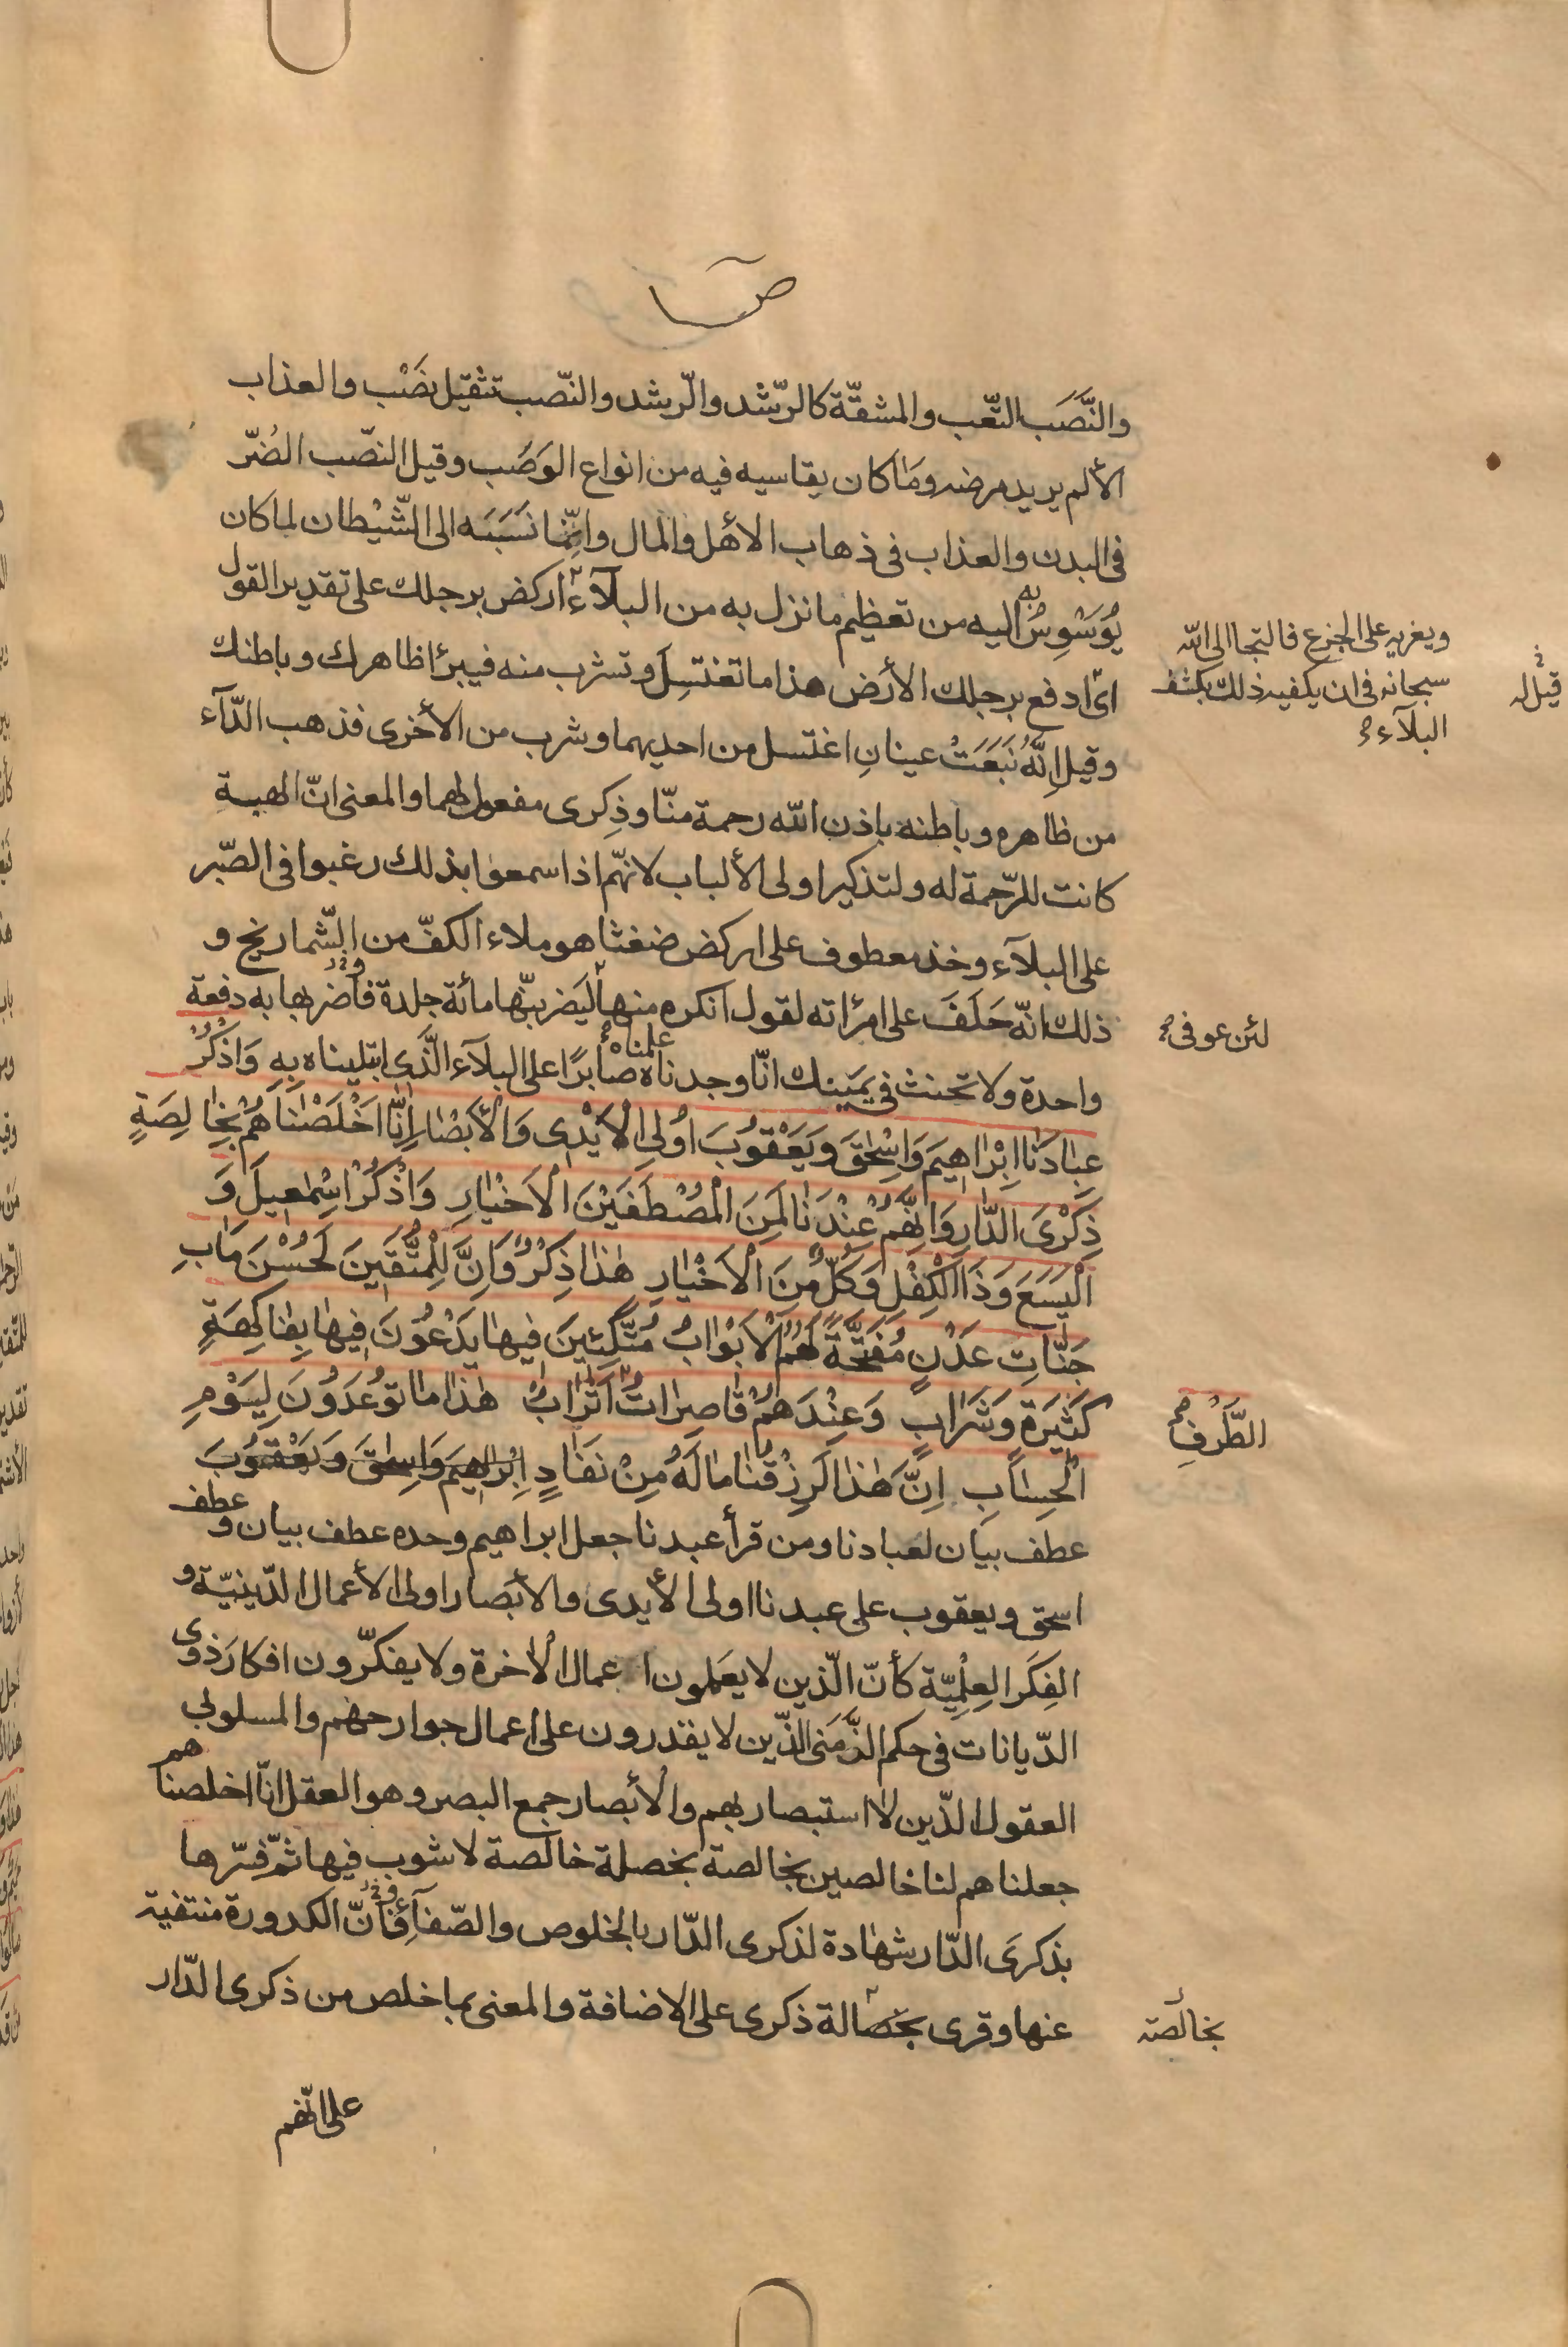 ص
والنَّصَب التّعب والمشقّة كالرّشد والرّشد والنّصب تثقيل نصْب والعذاب
الألم يريد مرضه وما كان يقاسيه فيه من انواع الوَصَب وقيل النّصب الضُرّ
فى البدن والعذاب فى ذهاب الأهل والمال وانّما نَسَبَه الى الشّيْطان لما كان
يُوَسْوِسُ به اليه من تعظيم ما نزل به من البلآء اركض برجلك على تقدير القول
ويغريه على الجزع فالتجا الى الله
سبحانه فى ان يكفيه ذلك بكشف
البلآء
قيل له
اى ادفع برجلك الأرض هذا ما تغتسِل وتشرب منه فيبرئ ظاهرك وباطنك
وقيل إنَّهُ نَبَعَتْ عينانِ اغتسل من احديهما وشرب من الأخرى فذهب الدّآء
من ظاهره وباطنه باذن الله رحمة منّا وذِكرى مفعول لهما والمعنى انّ الهبة
كانت للرّحمة له ولتذكير اولى الألباب لانهّم اذا سمعوا بذلك رغبوا فى الصّبر
على البلآء وخذ معطوف على اركض ضغثا هو ملاء الكفّ من الشّماريخ و
ذلك انّه حَلَفَ على امرأته لقول انكره منها ليَضربنّها مائة جلدة فاضربها به دفعة
لئن عوفى
واحدة ولا تحنث فى يمينك انّا وجدناه علمناه صابرًا على البلآء الَّذى ابتليناه بِهِ وَاذْكُرْ
عِبادَنا اِبْراهيمَ وَاِسْحٰقَ وَيَعْقوُبَ اوُلِى الْاَيْدى وَالْاَبْصارِ اِنّا اَخْلَصْناهُمْ بِخالِصَةٍ
ذِكْرَى الدّارِ وَاِنَّهُمْ عِنْدَنا لَمِنَ الْمُصْطَفَيْنَ الْاَخْيارِ وَاذْكُرْ اِسْمٰعيلَ وَ
اَلْيَسَعَ وَذَا الْكِفْلِ وَكُلٌّ مِنَ الْاَخْيارِ هٰذا ذِكْرٌ وَاِنَّ لِلْمُتَّقينَ لَحُسْنَ مَابٍ
جَنّاتِ عَدْنٍ مُفَتَّحَةً لَهُمُ الْاَبْوابُ مُتَّكِئينَ فيها يَدْعُونَ فيها بِفاكِهَةٍ
كَثيرَةٍ وَشَرابٍ وَعِنْدَهُمْ قاصِراتُ اَتْرابٌ هٰذا ما توُعَدوُنَ لِيَوْمِ
الطَّرْفِ
الْحِسابِ اِنَّ هٰذا لَرِزْقُنا مالَهُ مِنْ نَفادٍ اِبْرٰهيمَ وَاِسحٰقَ وَيَعْقوُبَ
عطف بيان لعبادنا ومن قرأ عبدنا جعل ابراهيم وحده عطف بيان و عطف
اسحق ويعقوب على عبدنا اولى الأيدى والأبصار اولى الأعمال الدّينيّة و
الفِكَر العِلْمِيّة كأنّ الّذين لا يعَملون اعمال الاخرة ولا يفكّرون افكار ذوى
الدّيانات فى حكم الزَّمْنى الّذين لا يقدرون على اعمال جوارحهم والمسلوبى
العقول الّذين لا استبصار بهم والأبصار جمع البصر وهو العقل انّا اخلصناهم
جعلناهم لنا خالصين بخالصة بخصلة خالصة لا شوب فيها ثمّ فسّرها
بذكرَى الدّار شهادة لذكرى الدّار بالخلوص والصّفآء فانّ الكدورة منتفية
عنها وقرى بخصالة ذكرى على الاضافة والمعنى بما خلص من ذكرى الدّار
بخالصة
على انّهم